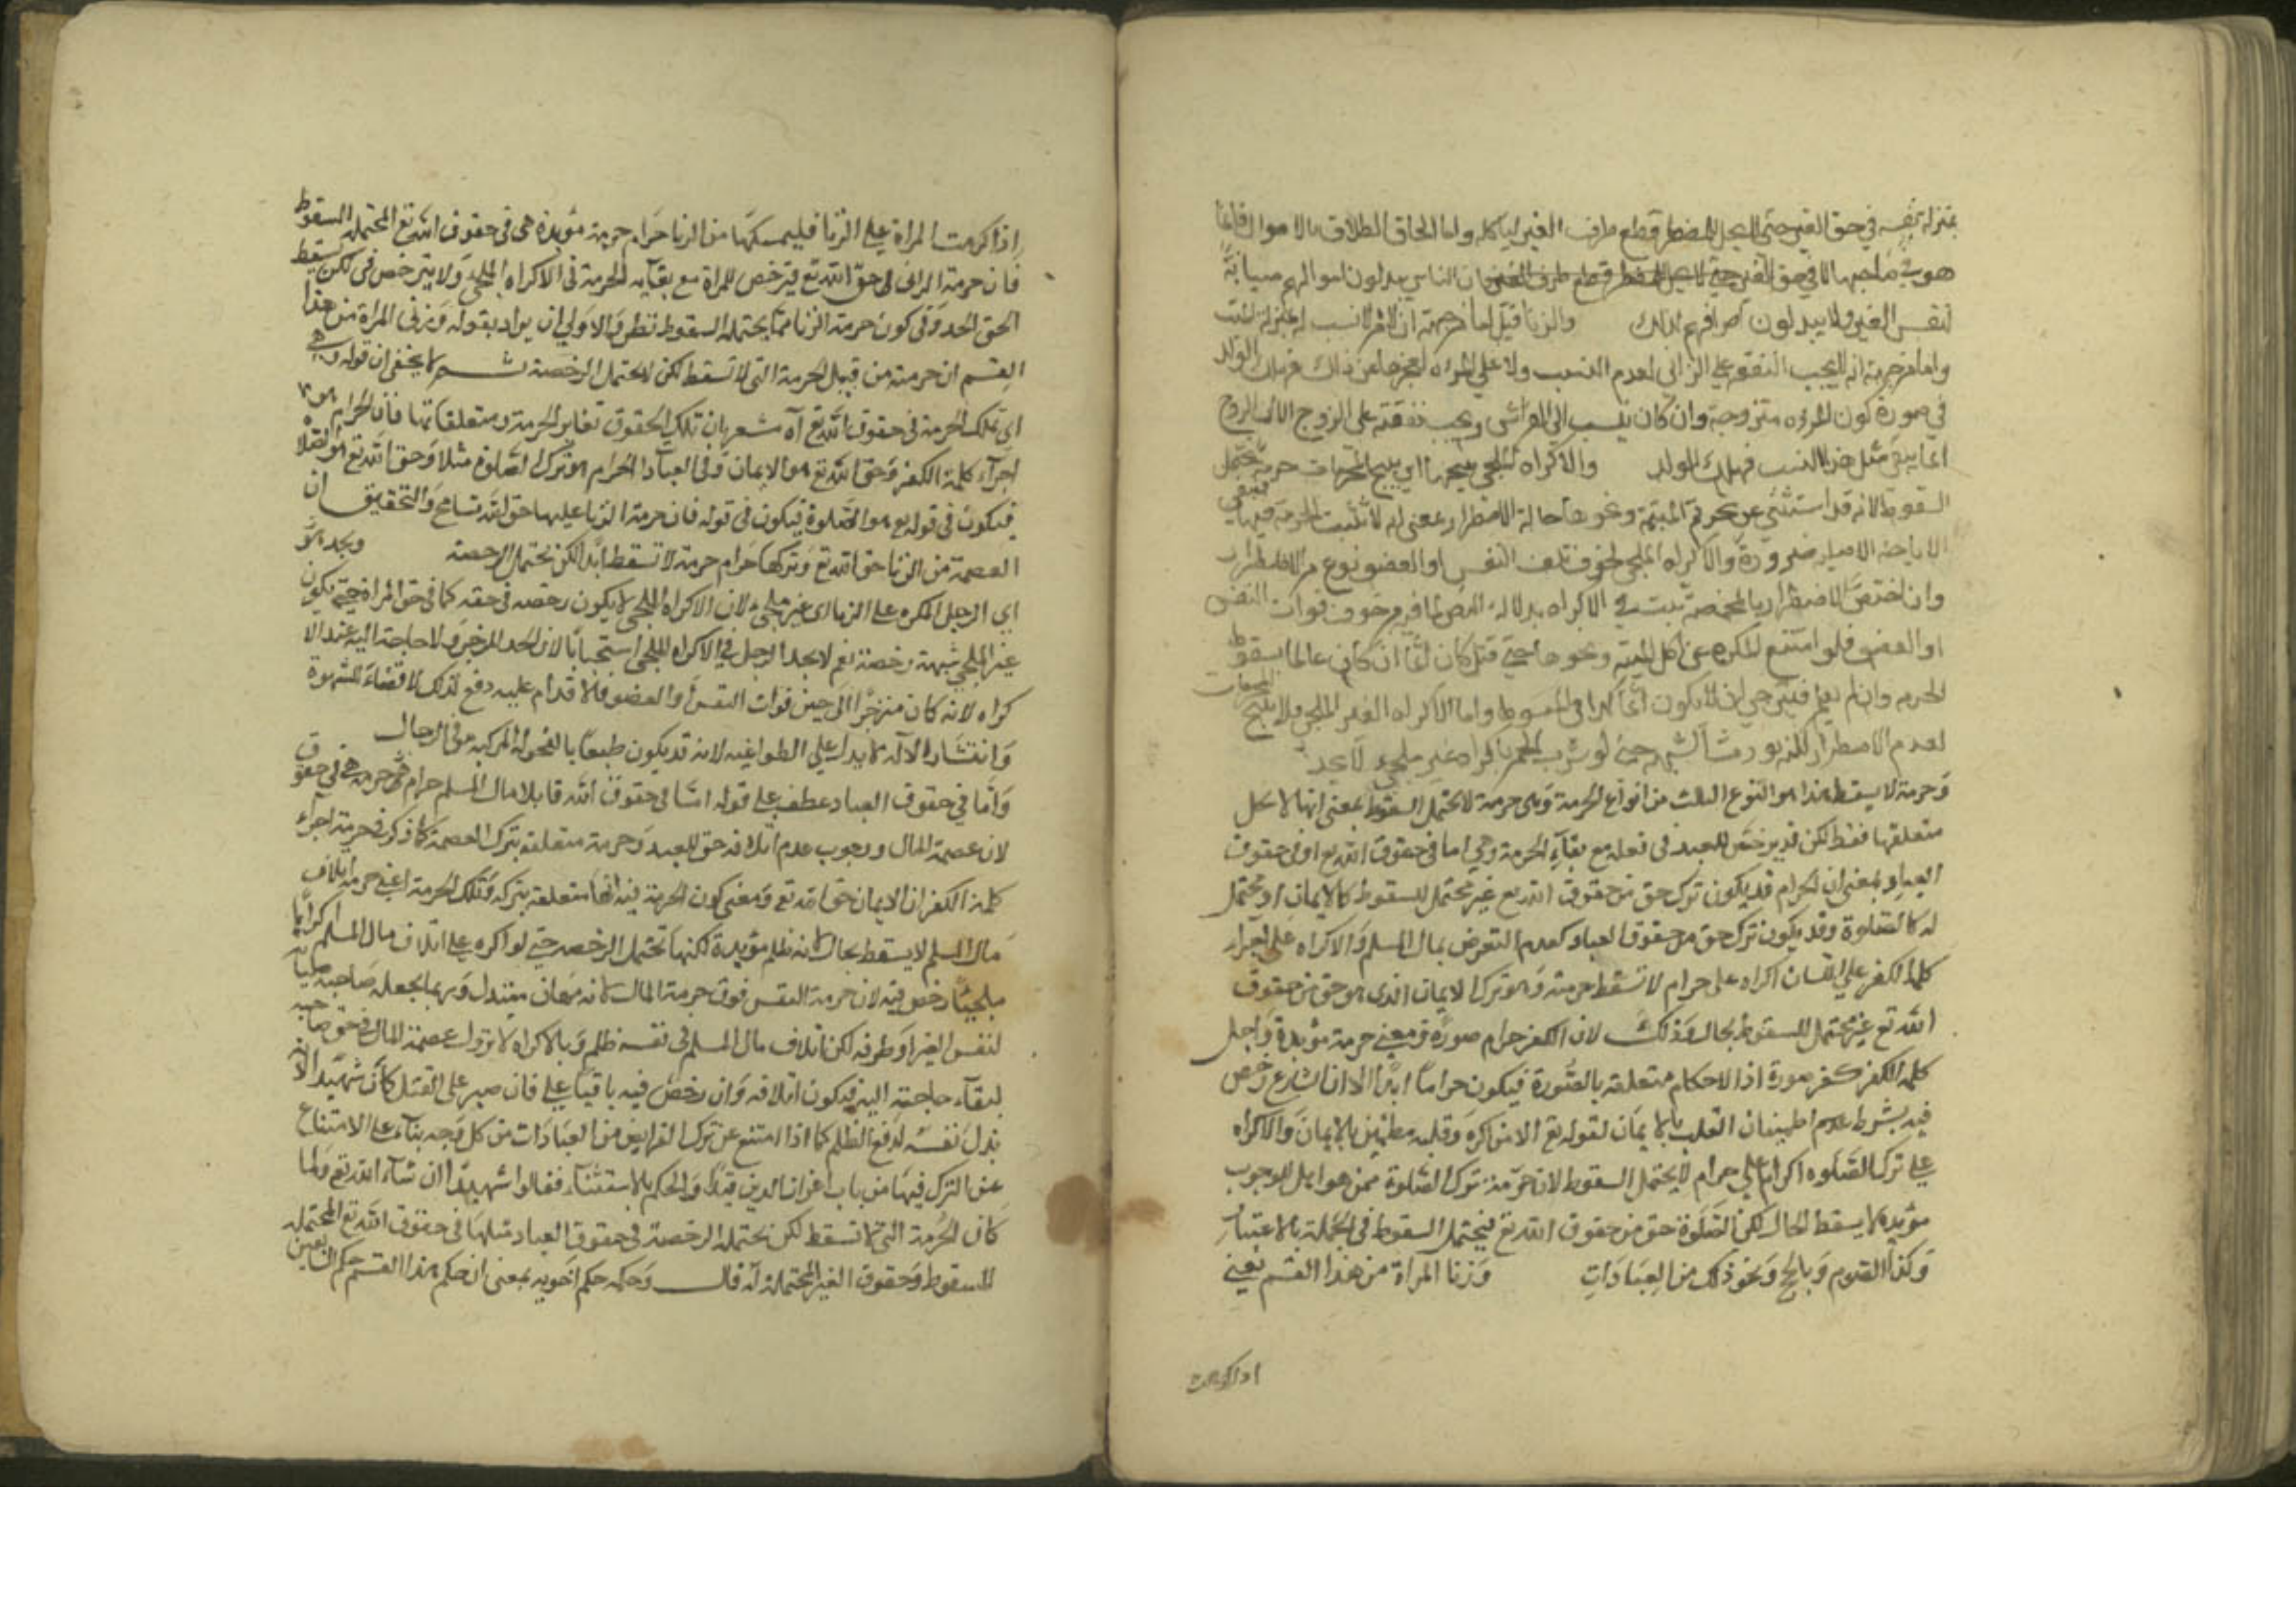 بمنزلة نفسه في حق الغير حتى لا يحل للمضطر قطع طرف الغير ليأكله واما الحاق الطلاق بالاموال فانما
هو في صاحبها لا في حق الغير فان الناس يبذلون اموالهم صيانة
لنفس الغير ولا يبذلون اطرافهم لذلك والزنا قتل لان الانسب له بمنزلة الميت
وانما انه لا يجب النفقة على الزاني لعدم النسب ولا على المرأة لعجزها عن ذلك فيهلك الولد
في صورة كون المرأة متزوجة وان كان ينسب الى الفراش ويجب نفقته على الزوج الا ان الزوج
انما ينفي مثل هذا النسب فيهلك الولد والاكراه الملجئ يبيحها اي يبيح المحرمات حرمة تحتمل
السقوط لانه قد استثنى عن تحريم الميتة ونحوها حالة الاضطرار بمعنى انه لا تثبت الحرمة فيها فتبقى
الاباحة الاصلية ضرورة والاكراه الملجئ لخوف تلف النفس او العضو نوع من الاضطرار
وان اختص الاضطرار بالمخمصة يثبت في الاكراه بدلالة النص لما فيه من خوف فوات النفس
او العضو فلو امتنع المكره عن اكل الميتة ونحوها حتى قتل كان آثما ان كان عالما بسقوط
الحرمة وان لم يعلم فيرجى ان لا يكون آثما كذا في المبسوط واما الاكراه الغير الملجئ فلا يبيح المحرمات
لعدم الاضطرار للمزبور حتى لو شرب الخمر باكراه غير ملجئ لا يحد
وحرمة لا يسقط هذا هو النوع الثالث من انواع الحرمة وهي حرمة لا تحتمل السقوط بمعنى انها لا تحل
متعلقها فقط لكن قد يرخص للعبد في فعله مع بقاء الحرمة وهي اما في حقوق الله تع او في حقوق
العباد بمعنى ان الحرام قد يكون ترك حق من حقوق الله تع غير محتمل للسقوط كالايمان او محتمل
له كالصلوة وقد يكون ترك حق من حقوق العباد كعدم التعرض بمال المسلم والاكراه على اجراء
كلمة الكفر على اللسان اكراه على حرام لا تسقط حرمته وهو ترك الايمان الذي هو حق من حقوق
الله تع غير محتمل للسقوط بحال وذلك لان الكفر حرام صورة ومعنى حرمة مؤبدة واجراء
كلمة الكفر كفر صورة اذ الاحكام متعلقة بالصورة فيكون حراما ابدا الا ان الشارع رخص
فيه بشرط اطمينان القلب بالايمان لقوله تع الا من اكره وقلبه مطمئن بالايمان والاكراه
على ترك الصلوة اكراه على حرام لا يحتمل السقوط لان حرمة ترك الصلوة ممن هو اهل للوجوب
مؤبدة لا يسقط بحال لكن الصلوة حق من حقوق الله تع فيحتمل السقوط في الجملة بالاعتبار
وكذا الصوم وبالحج ونحو ذلك من العبادات وزنا المرأة من هذا القسم يعني
اذا اكرهت
اذا اكرهت المرأة على الزنا فليمسكها من الزنا حرام حرمة مؤبدة هي في حقوق الله تع المحتملة السقوط
فان حرمة الزنا حق الله تع فيترخص للمرأة مع بقاء الحرمة في الاكراه الملجئ ولا يترخص في لكن يسقط
الحق الحد وفي كون حرمة الزنا مما يحتمل السقوط نظر والاولى ان يراد بقوله وزنا المرأة من هذا
القسم ان حرمته من قبيل الحرمة التي لا تسقط لكن تحتمل الرخصة ثم لا يخفى ان قوله وهي
اي تلك الحرمة في حقوق الله تع آه مشعر بان تلك الحقوق تغاير الحرمة ومتعلقاتها فان الحرام هو
اجراء كلمة الكفر وحق الله تع هو الايمان وفي العبادات الحرام هو ترك الصلوة مثلا وحق الله تع هو الصلاة
فيكون في قوله هو الصلوة فيكون في قوله فان حرمة الزنا عليها حق الله تسامح والتحقيق ان
العصمة من الزنا حق الله تع وتركها حرام حرمة لا تسقط ابدا لكن تحتمل الرخصة ويحد هو
اي الرجل المكره على الزنا اي غير ملجئ لان الاكراه الملجئ لا يكون رخصة في حقه كما في حق المرأة حتى يكون
غير الملجئ شبهة رخصة نعم لا يحد الرجل في الاكراه الملجئ استحسانا لان الحد للزجر ولا حاجة اليه عند الا
كراه لانه كان منزجرا الى حين فوات النفس والعضو فالاقدام عليه دفع لذلك لا قضاء للشهوة
وانتشار الآلة لا يدل على الطواعية لانه قد يكون طبعا بالفحولة المركبة في الرجال
واما في حقوق العباد عطف على قوله اما في حقوق الله قاتلاف مال المسلم حرام حرمة هي في حقوق
لان عصمة المال ووجوب عدم اتلافه حق للعبد وحرمة متعلقة بترك العصمة كما ذكر في حرمة اجراء
كلمة الكفر ان الايمان حق الله تع ومعنى كون الحرمة فيه انها متعلقة بتركه وتلك الحرمة اعني حرمة اتلاف
مال المسلم لا يسقط بحال لانه ظلم مؤبدة لكنها تحتمل الرخصة حتى لو اكره على اتلاف مال المسلم اكراها
ملجئا رخص فيه لان حرمة النفس فوق حرمة المال لانه مهان مبتذل وربما يجعله صاحبه صيانة
لنفس الغير او طرفه لكن اتلاف مال المسلم في نفسه ظلم وبالاكراه لا تزول عصمة المال في حق صاحبه
لبقاء حاجته اليه فيكون اتلافه وان رخص فيه باقيا على فان صبر على القتل كان شهيدا لانه
بذل نفسه لدفع الظلم كما اذا امتنع عن ترك الفرايض من العبادات من كل وجه بناء على الامتناع
عن الترك فيها من باب اعزاز الدين قيدوا الحكم بالاستثناء فقالوا شهيدا ان شاء الله تع ولما
كان الحرمة التي لا تسقط لكن تحتمل الرخصة في حقوق العباد مثلها في حقوق الله تع المحتملة
للسقوط وحقوق الغير المحتملة له قال وحكمه حكم اخويه بمعنى ان حكم هذا القسم حكم القسمين